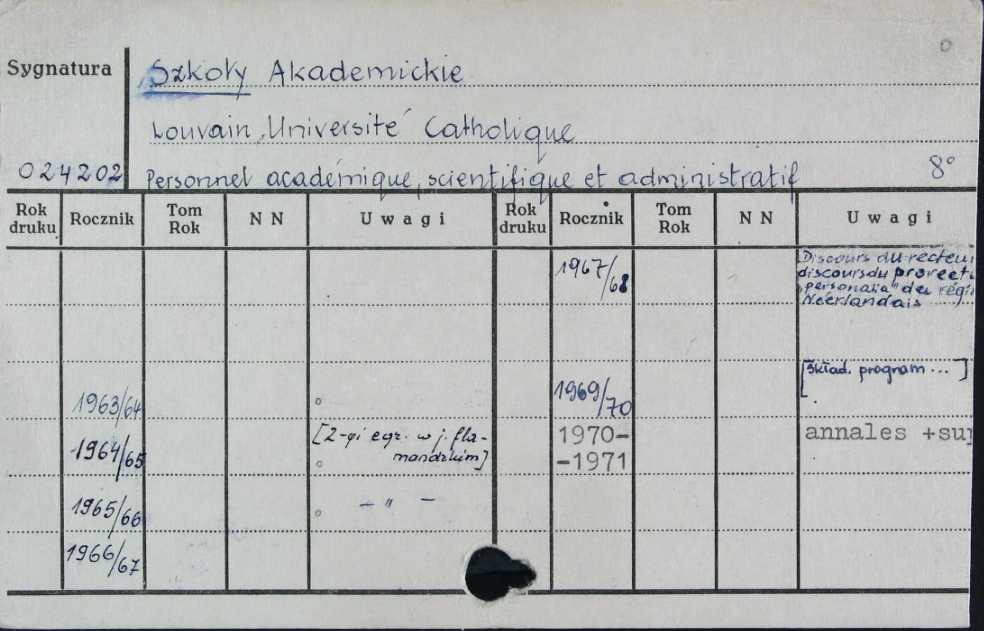 Sygnatura
Szkoły Akademickie
Louvain, Université Catholique
024202
Personnel académique, scientifique et administratif
8°
Rok druku Rocznik Tom Rok NN Uwagi Rok druku Rocznik Tom Rok NN Uwagi
1967/68 Discours du recteur
discours du prorect
"personalia" du régi
Néerlandais
1963/64
1969/70 [Skład. program ... ]
1964/65 [2-gi egz. w j. fla-
mandzkim]
1970-
-1971
annales +sup
1965/66 – " –
1966/67